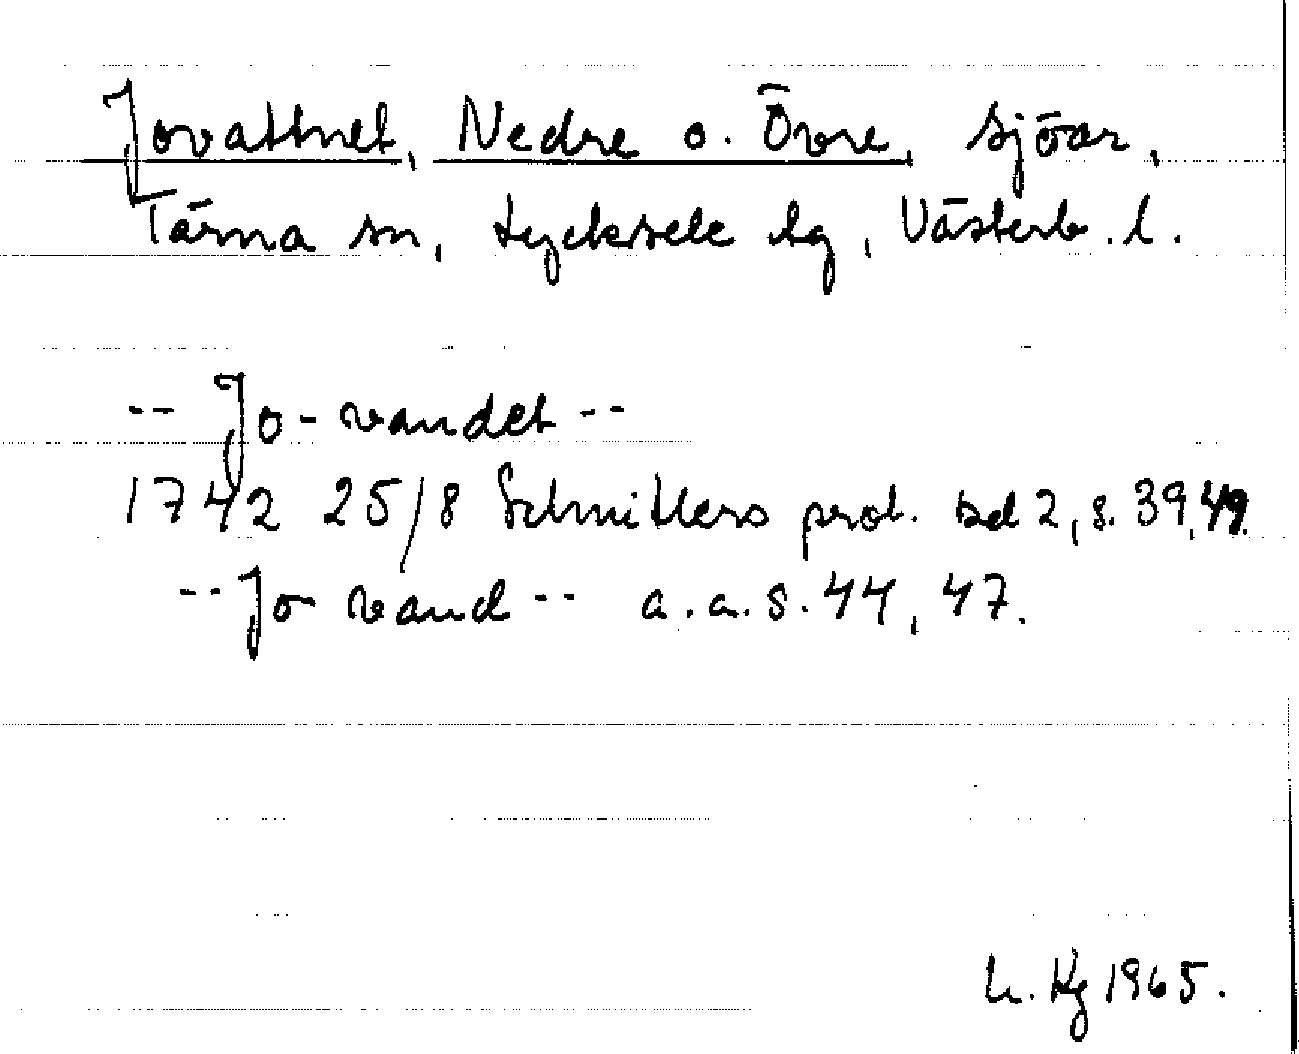 Jovattnet, Nedre o. Övre, sjöar,
Tärna sn, Lycksele lg, Västerb. l.
-- Jo-vandet --
1742 25/8 Schnitlers prot. bd 2, s. 39, 49.
-- Jo vand -- a.a. s. 44, 47.
Kg 1965.